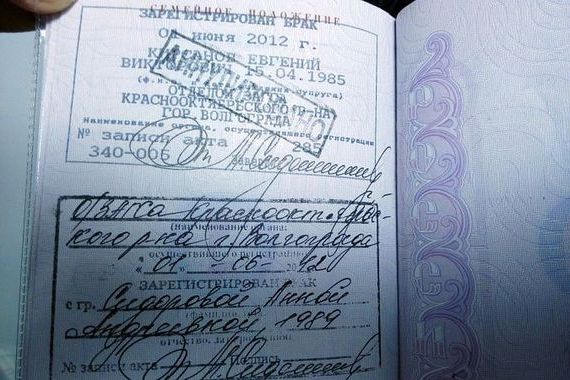 СЕМЕЙНОЕ ПОЛОЖЕНИЕ
ЗАРЕГИСТРИРОВАН БРАК
01 июня 2012 г.
ЕВГЕНИЙ
15.04.1985
ОТДЕЛОМ
КРАСНООКТЯБРЬСКОГО Р-НА
ГОР. ВОЛГОГРАДА
Наименование органа, осуществившего регистрацию
№ записи акта 285
340-006
ОЗАГСа Краснооктябрьс-
кого р-на г. Волгограда
(наименование органа,
осуществившего регистрацию)
"01" - 06 - 2012
ЗАРЕГИСТРИРОВАН БРАК
с гр. Сидоровой Анной
Андреевной, 1989
отчество, дата рожд.
№ записи акта Подпись